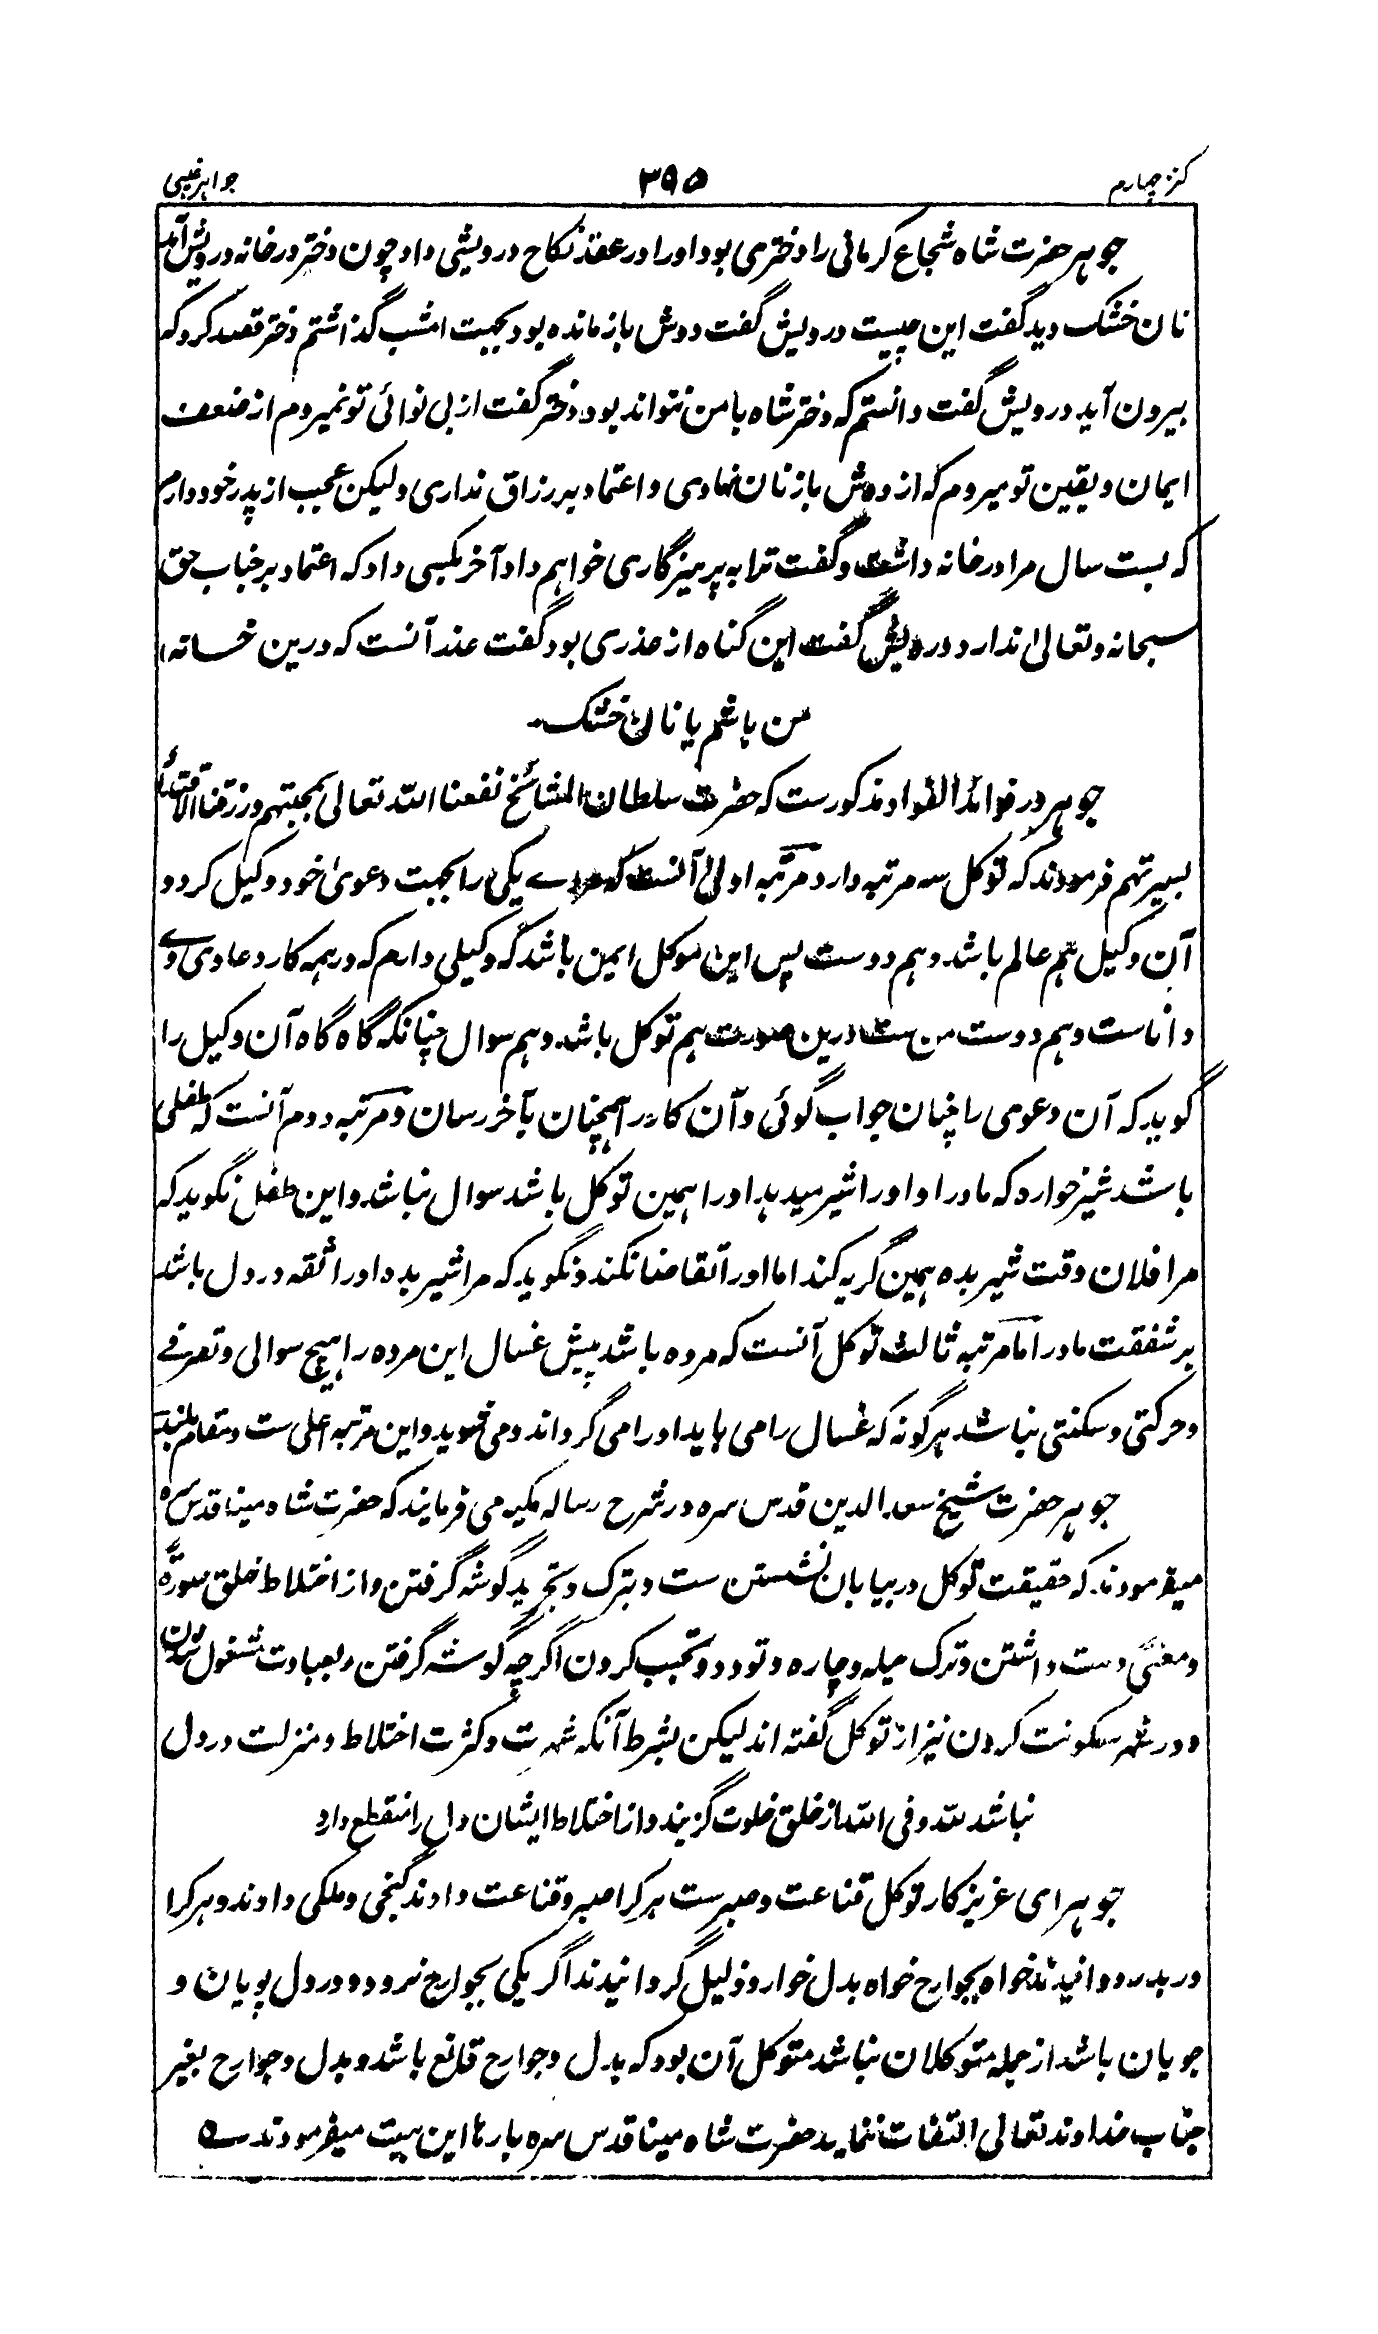 کنز چهارم ۳۹۵ جواهر غیبی
جوهر حضرت شاه شجاع کرمانی را دختری بود او را در عقد نکاح درویشی داد چون دختر در خانه درویش آمد
نان خشک دید گفت این چیست درویش گفت دوش باز مانده بود بجهت امشب گذاشتم دختر قصد کرد که
بیرون آید درویش گفت دانستم که دختر شاه با من نتواند بود دختر گفت از بی نوائی تو نمیروم از ضعف
ایمان و یقین تو میروم که از دوش باز نان نهادی و اعتماد بر رزاق نداری و لیکن عجب از پدر خود دارم
که بست سال مرا در خانه داشت و گفت ترا به پرهیزگاری خواهم داد آخر بکسی داد که اعتماد بر جناب حق
سبحانه و تعالی ندارد درویش گفت این گناه از عذری بود گفت عذر آنست که درین خانه
من باشم یا نان خشک
جوهر در فوائد الفواد مذکورست که حضرت سلطان المشائخ نفعنا الله تعالی بمحبتهم ورزقنا الاقتداء
بسیرتهم فرمودند که توکل سه مرتبه دارد مرتبه اولی آنست که مردے یکی را بجهت دعوی خود وکیل کرد و
آن وکیل هم عالم باشد و هم دوست پس این موکل ایمن باشد که وکیلی دارم که در همه کار دعاوی وے
داناست و هم دوست من ست درین صورت هم توکل باشد و هم سوال چنانکه گاه گاه آن وکیل را
گوید که آن دعوی را چنان جواب گوئی و آن کار را همچنان بآخر رسان و مرتبه دوم آنست که طفلی
باشد شیر خواره که مادر او او را شیر میدهد او را همین توکل باشد سوال نباشد و این طفل نگوید که
مرا فلان وقت شیر بده همین گریه کند اما او را تقاضا نکند و نگوید که مرا شیر بده او را ثقه در دل باشد
بر شفقت مادر اما مرتبه ثالث توکل آنست که مرده باشد پیش غسال این مرده را هیچ سوالی و تصرفے
و حرکتی و سکنتی نباشد هر گونه که غسال را می باید او را می گرداند و می شوید و این مرتبه اعلی ست و مقام بلند
جوهر حضرت شیخ سعد الدین قدس سره در شرح رساله مکیه می فرمایند که حضرت شاه مینا قدس سره
میفرمودند که حقیقت توکل در بیابان نشستن ست و بترک و تجرید گوشه گرفتن و از اختلاط خلق صورةً
و معنیً دست داشتن و ترک حیله و چاره و تودد و تحبب کردن اگرچه گوشه گرفتن و بعبادت مشغول شدن
و در شهر سکونت کردن نیز از توکل گفته اند لیکن بشرط آنکه شهرت و کثرت اختلاط و منزلت در دل
نباشد لله و فی الله از خلق خلوت گزیند و از اختلاط ایشان دل را منقطع دارد
جوهر ای عزیز کار توکل قناعت و صبرست هر کرا صبر و قناعت دادند گنجی و ملکی دادند و هر کرا
در بدر دوانیدند خواه بجوارح خواه بدل خوار و ذلیل گردانیدند اگر یکی بجوارح نرود و در دل پویان و
جویان باشد از جمله متوکلان نباشد متوکل آن بود که بدل و جوارح قانع باشد و بدل و جوارح بغیر
جناب خداوند تعالی التفات ننماید حضرت شاه مینا قدس سره بارها این بیت میفرمودند ے